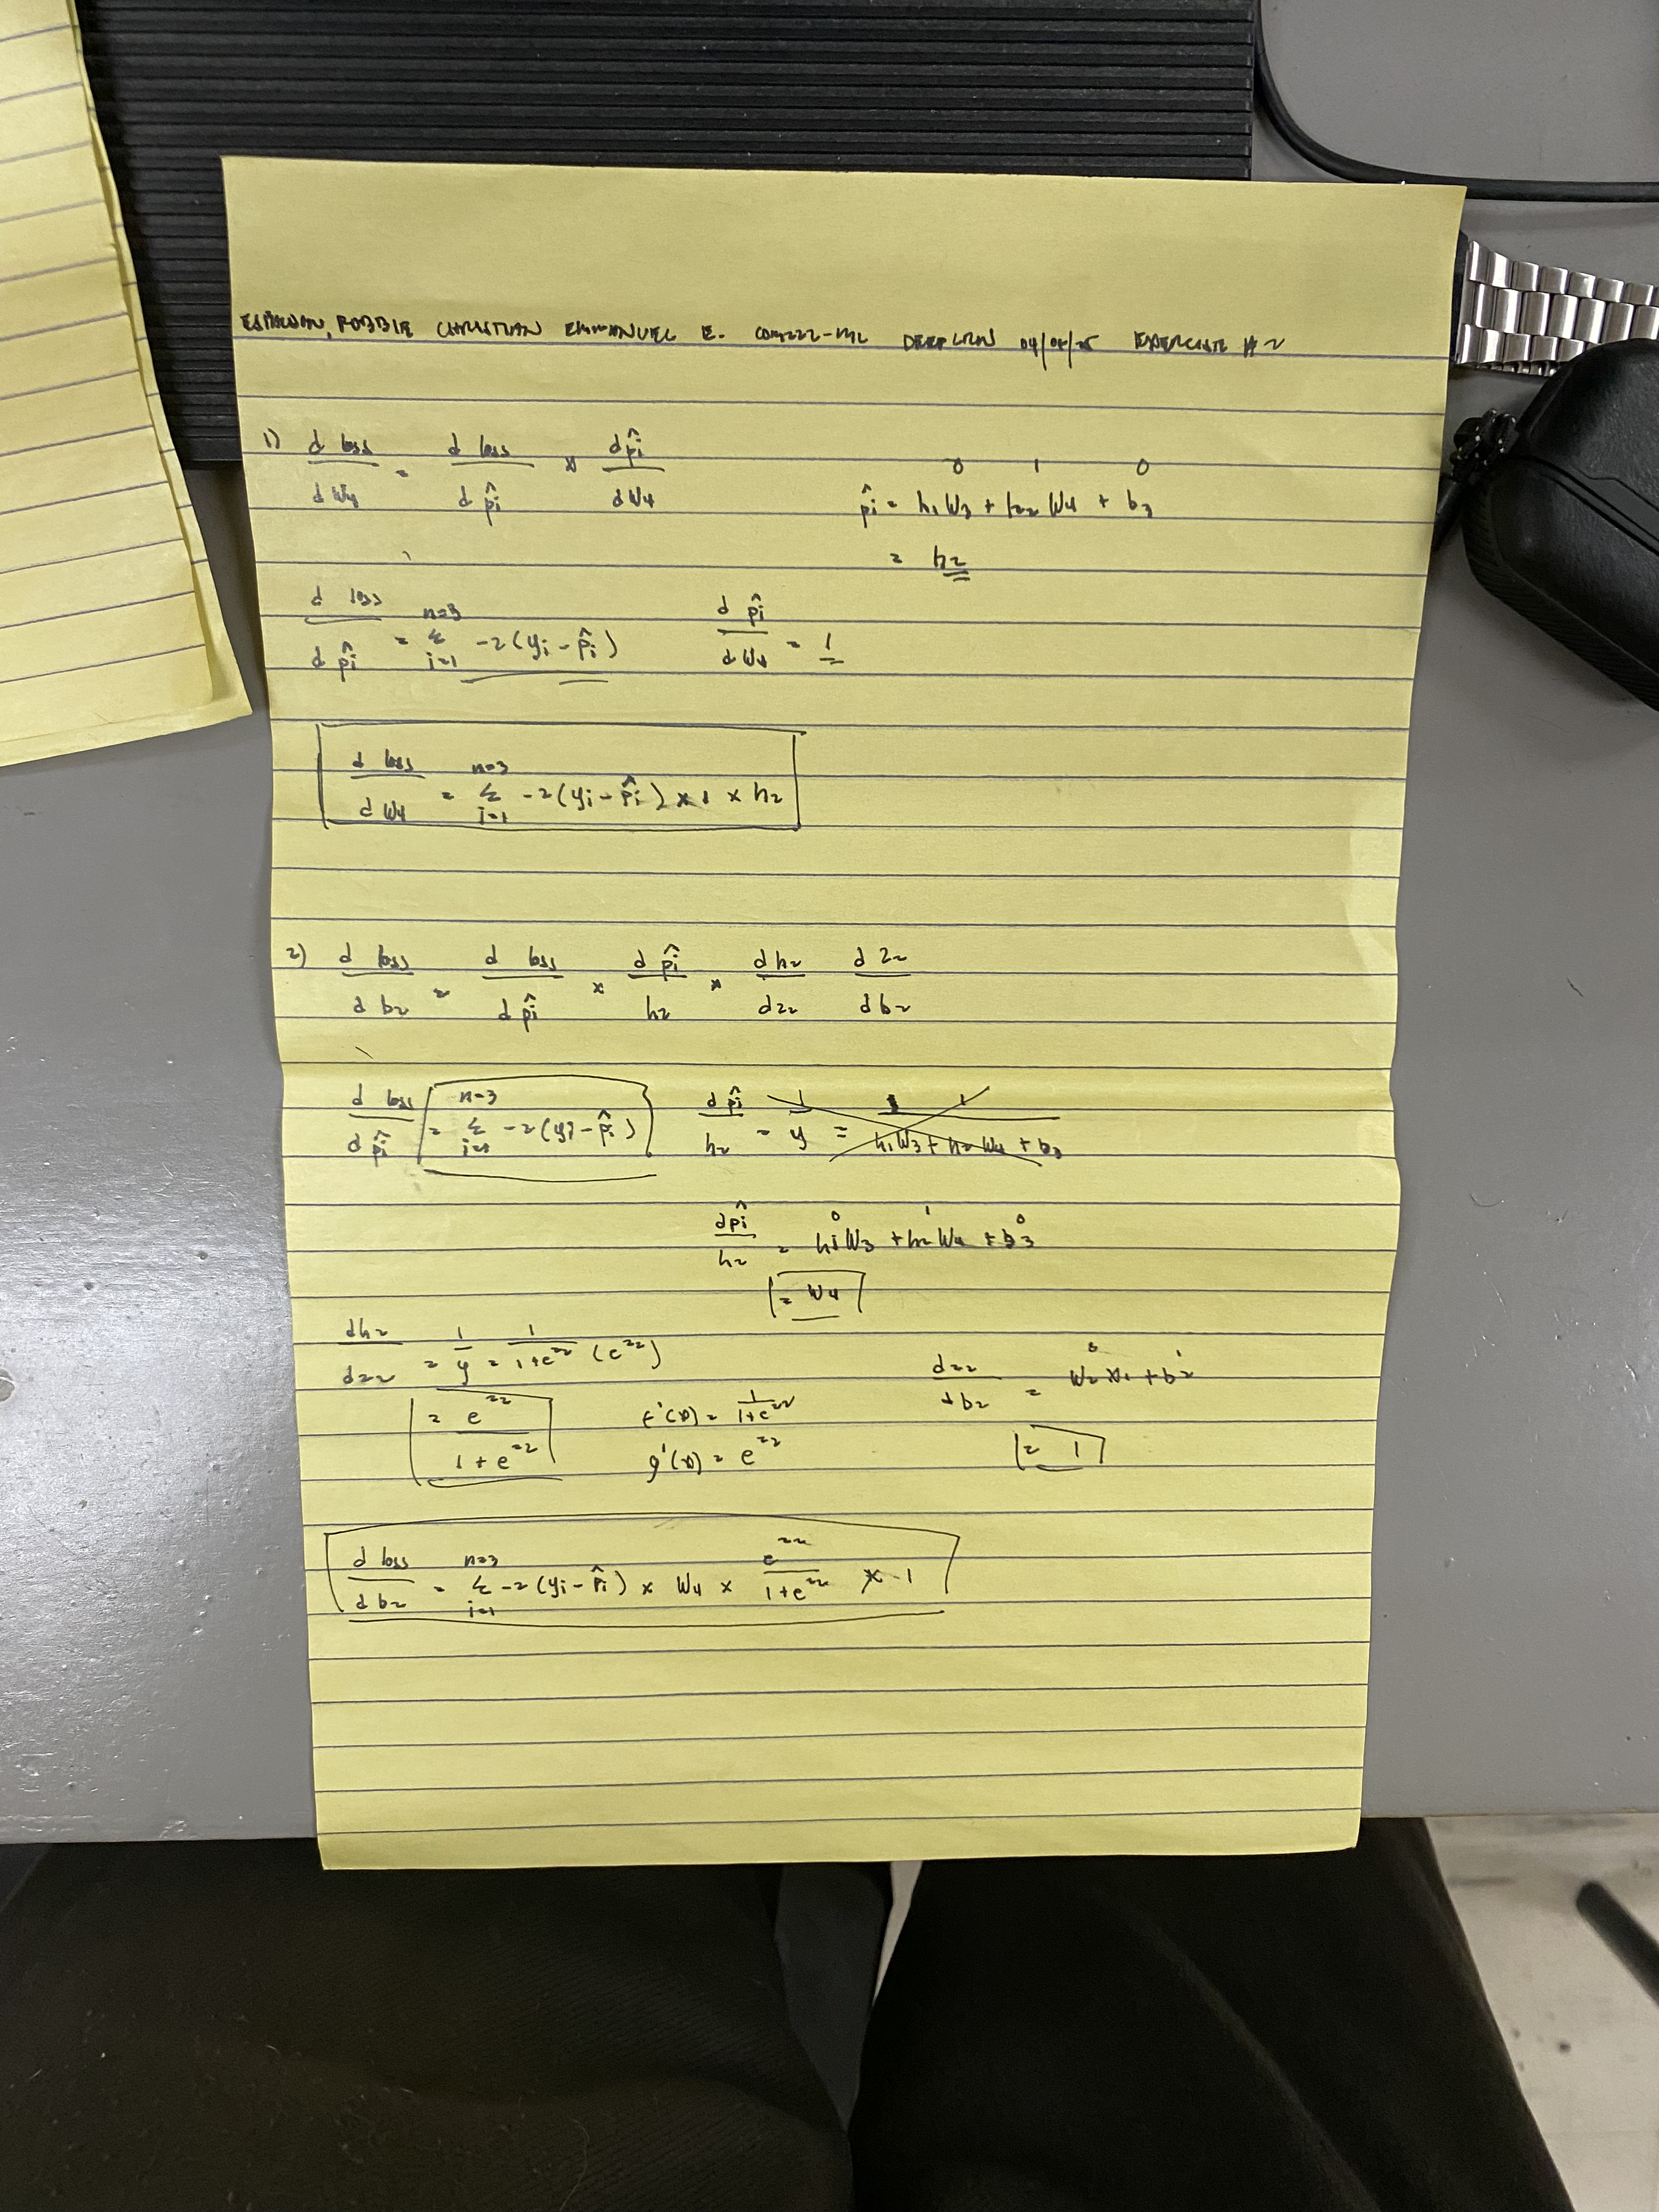 ROBBIE CHRISTIAN EMMANUEL E. COM222-ML DEEPLRN EXERCISE # 2
1) d loss / d w4 = d loss / d p̂i × d p̂i / d w4
0 1 0
p̂i = h1 w3 + h2 w4 + b3
= h2
d loss / d p̂i = n=3 Σ i=1 -2(yi - p̂i)
d p̂i / d w4 = 1
d loss / d w4 = n=3 Σ i=1 -2(yi - p̂i) × 1 × h2
2) d loss / d b2 = d loss / d p̂i × d p̂i / h2 × d h2 / d z2 d z2 / d b2
d loss / d p̂i = n=3 Σ i=1 -2(yi - p̂i)
d p̂i / h2 = 1 / y = 1 / h1 w3 + h2 w4 + b3
0 1 0
d p̂i / h2 = h1 w3 + h2 w4 + b3
= w4
d h2 / d z2 = 1 / y = 1 / 1 + e^z2 (e^z2)
= e^z2 / 1 + e^z2
f'(x) = 1 / 1 + e^z2
g'(x) = e^z2
0 1
d z2 / d b2 = w2 x1 + b2
= 1
d loss / d b2 = n=3 Σ i=1 -2(yi - p̂i) × w4 × e^z2 / 1 + e^z2 × 1